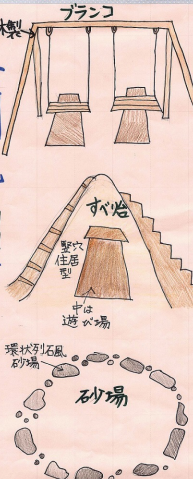 ブランコ
木製
すべり台
竪穴
住居
型
中は
遊び場
環状列石風
砂場
砂場